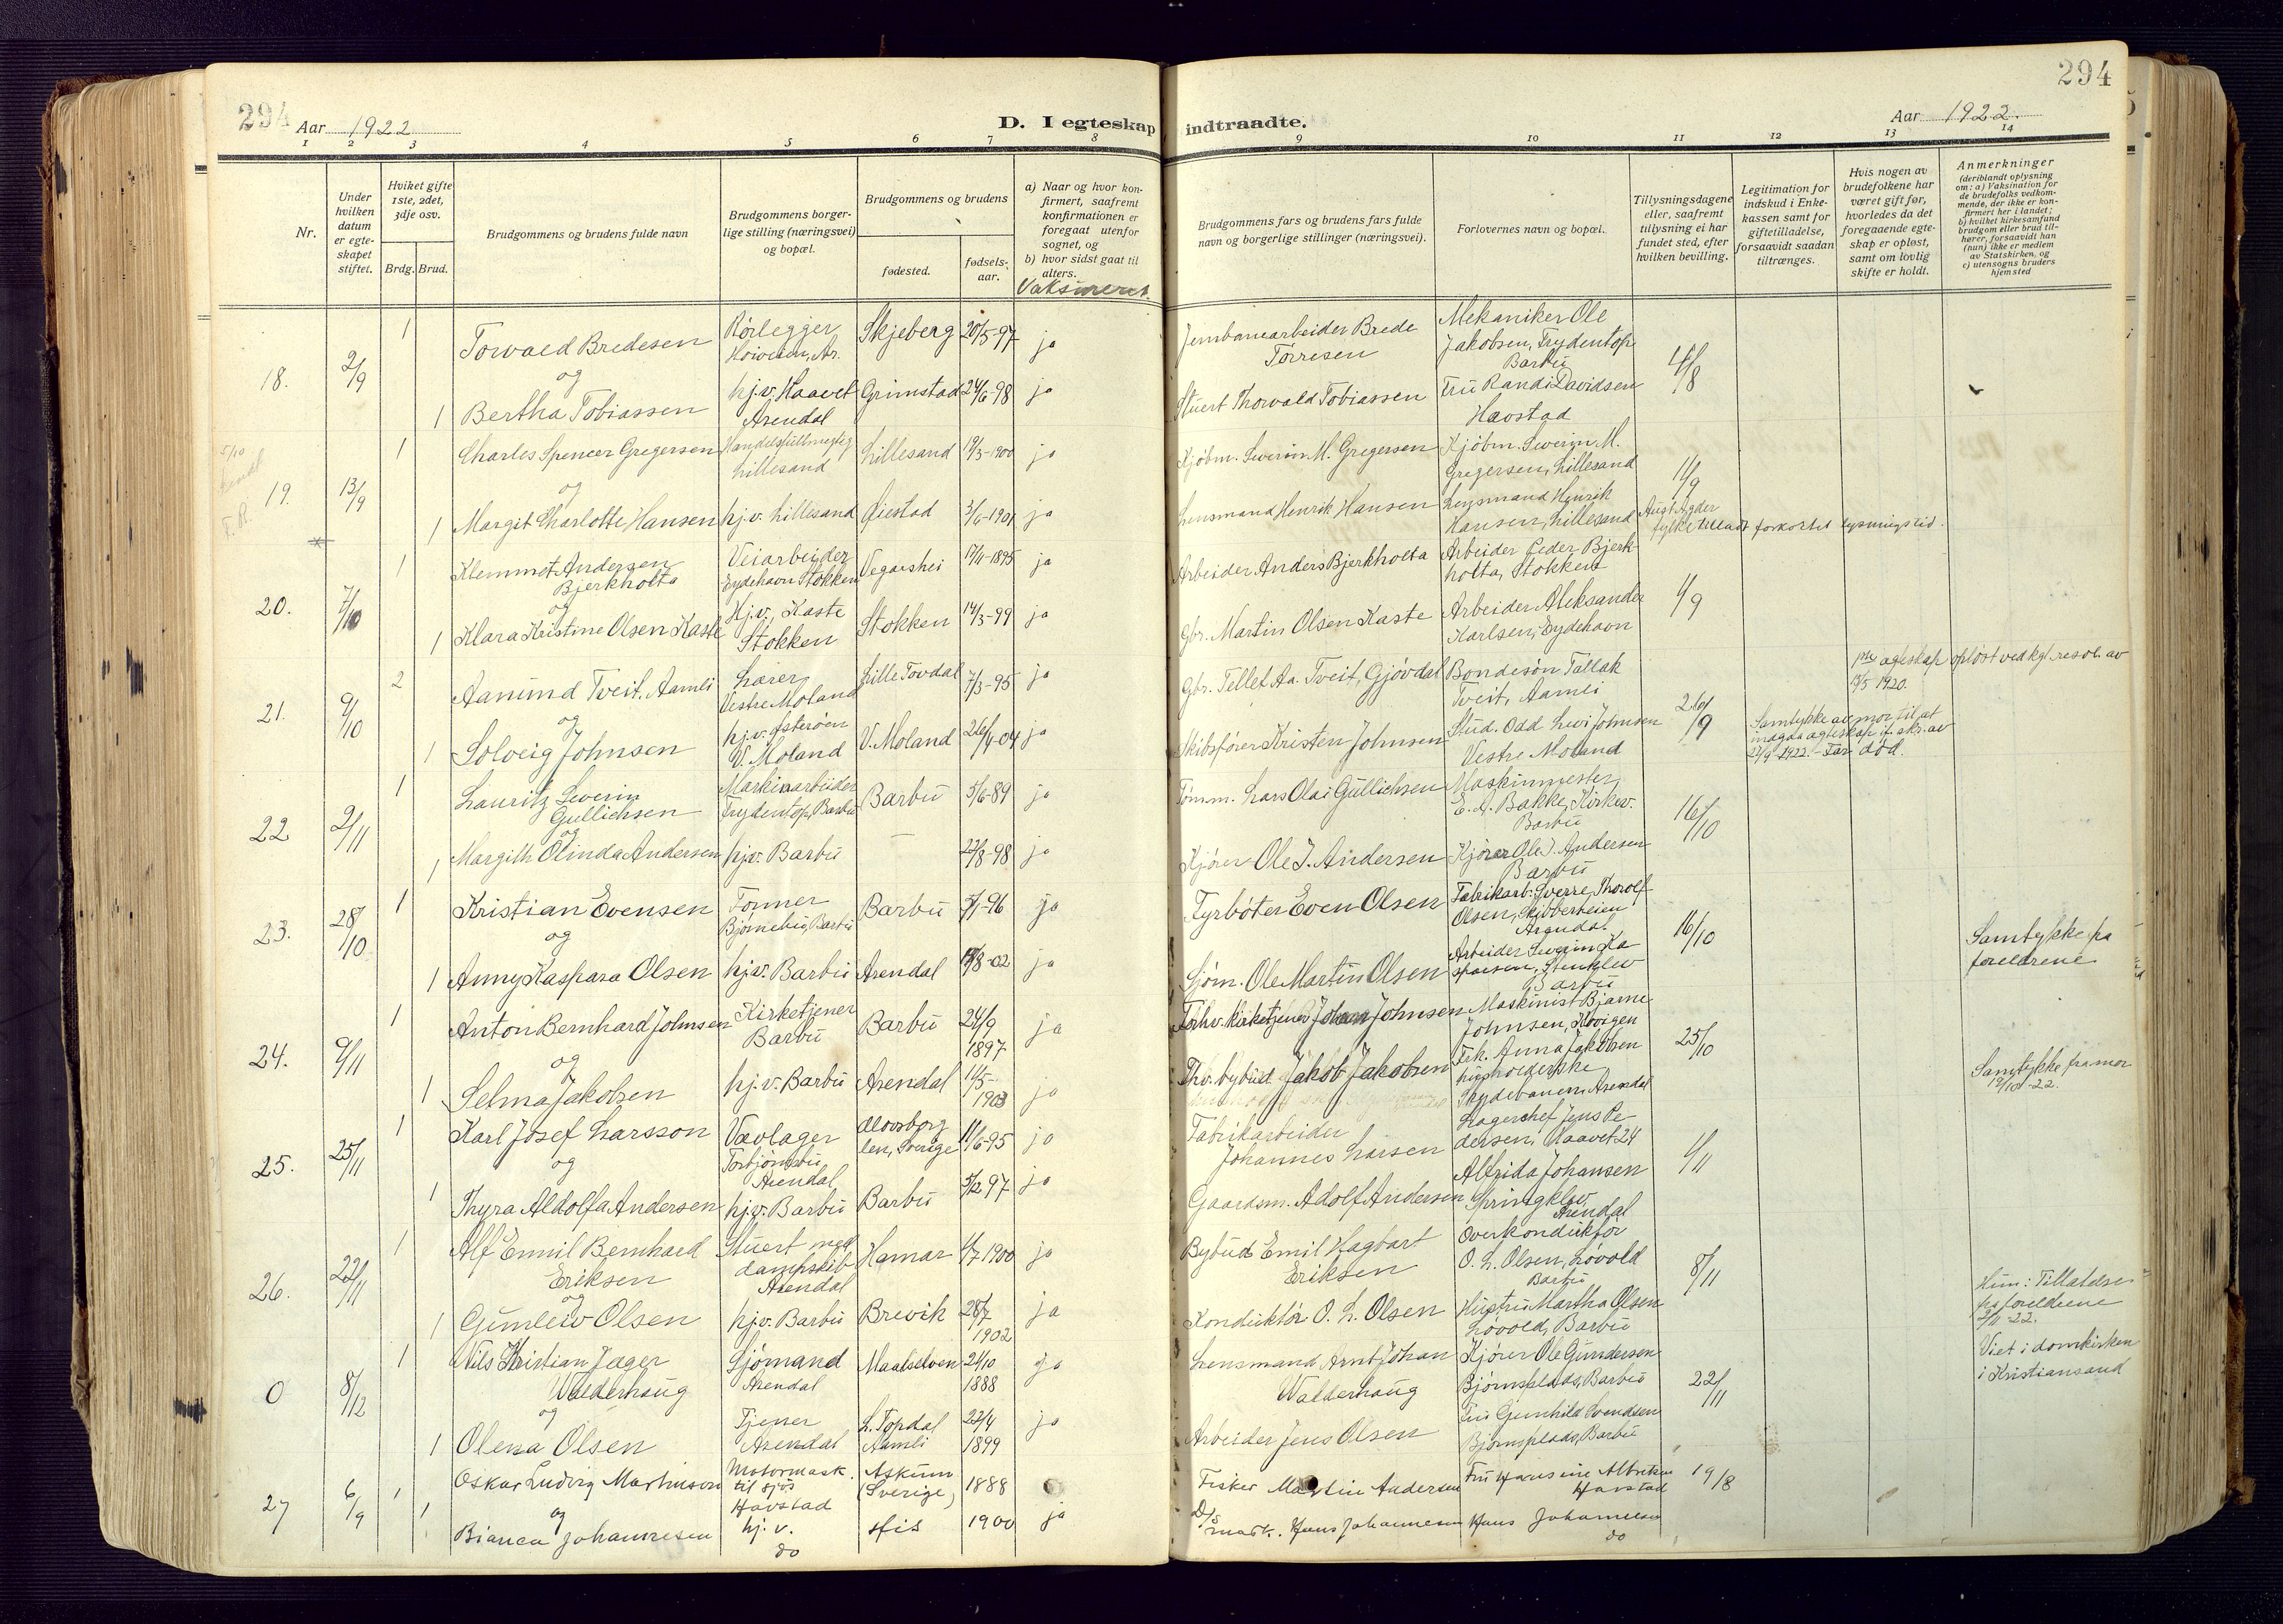 294
Aar 1922
D. I egteskap
indtraadte.
Aar 1922.
294
1 2 3 4 5 6 7 8
9 10 11 12 13 14
Nr.
Under hvilken datum er egteskapet stiftet.
Hviket gifte 1ste, 2det, 3dje osv.
Brdg. Brud.
Brudgommens og brudens fulde navn
Brudgommens borgerlige stilling (næringsvei) og bopæl.
Brudgommens og brudens
fødested.
fødselsaar.
a) Naar og hvor konfirmert, saafremt konfirmationen er foregaat utenfor sognet, og
b) hvor sidst gaat til alters.
Vaksinert.
Brudgommens fars og brudens fars fulde navn og borgerlige stillinger (næringsvei).
Forlovernes navn og bopæl.
Tillysningsdagene eller, saafremt tillysning ei har fundet sted, efter hvilken bevilling.
Legitimation for indskud i Enkekassen samt for giftetilladelse, forsaavidt saadan tiltrænges.
Hvis nogen av brudefolkene har været gift før, hvorledes da det foregaaende egteskap er opløst, samt om lovlig skifte er holdt.
Anmerkninger
(deriblandt oplysning om: a) Vaksination for de brudefolks vedkommende, der ikke er konfirmert her i landet; b) hvilket kirkesamfund brudgom eller brud tilhører, forsaavidt han (hun) ikke er medlem av Statskirken, og c) utensogns bruders hjemsted
18. 2/9 1 Torvald Bredesen Rørlegger Skjeberg 20/5-97 ja Jernbanearbeider Brede Torresen Mekaniker Ole Jakobsen, Frydentop Barbu 4/8
og
1 Bertha Tobiassen hj.v. Haavet Arendal Grimstad 24/6-98 ja Stuert Thorvald Tobiassen Fru Randi Davidsen Havstad
19. 13/9 1 Charles Spencer Gregersen Handelsfullmegtig Lillesand Lillesand 19/3-1900 ja Kjøbm. Severin M. Gregersen Kjøbm. Severin M. Gregersen, Lillesand 11/9
og
1 Margit Charlotte Hansen hj.v. Lillesand Øiestad 3/6-1901 ja Lensmand Henrik Hansen Lensmand Henrik Hansen, Lillesand Aust Agder fylke tillatt forkortet lysningstid.
20. 7/10 1 Klemmet Andersen Bjerkholta Veiarbeider Eydehavn Stokken Vegarshei 17/11-1895 ja Arbeider Anders Bjerkholta Arbeider Peder Bjerkholta, Stokken 1/9
og
1 Klara Kristine Olsen Kaste Hj.v., Kaste Stokken Stokken 14/3-99 ja Gbr. Martin Olsen Kaste Arbeider Aleksander Karlsen, Eydehavn
21. 9/10 2 Aanund Tveit, Aamli Lærer Vestre Moland Lille Tovdal 7/3-95 ja Gbr. Tellef Aa. Tveit, Gjøvdal Bondesøn Tallak Tveit, Aamli 26/9 1ste egteskap opløst ved kgl. resol. av 15/5 1920.
og
1 Solveig Johnsen hj.v. Østerøen V. Moland V. Moland 26/4-04 ja Skibsfører Kristen Johnsen Stud. Odd Levi Johnsen Vestre Moland Samtykke av mor til at indgaa egteskap if. skr. av 27/9 1922. - Far død.
22 2/11 1 Lauritz Severin Gullichsen Maskinarbeider Frydentop, Barbu Barbu 5/6-89 ja Tømm. Lars Olai Gullichsen Maskinmester E. A. Bakke, Kirkev. Barbu 16/10
og
1 Margith Olinda Andersen hjv. Barbu — 22/8-98 ja Kjører Ole J. Andersen Kjører Ole J. Andersen Barbu
23. 28/10 1 Kristian Evensen Former Bjørnebu, Barbu Barbu 5/1-96 ja Fyrbøter Even Olsen Fabrikarb. Sverre Thorolf Olsen, Skibberheien Arendal 16/10
og
1 Anny Kaspara Olsen hjv. Barbu Arendal 18/8-02 ja Sjøm. Ole Martin Olsen Arbeider Severin Kaspersen, Stenklev Barbu Samtykke fra foreldrene
24. 9/11 1 Anton Bernhard Johnsen Kirketjener Barbu Barbu 24/9 1897 ja Forhv. Kirketjener Johan Johnsen Maskinist Bjarne Johnsen, Kovigen 25/10
og
1 Selma Jakobsen hj.v. Barbu Arendal 11/5-1903 ja Fhv. bybud Jakob Jakobsen Frk. Anna Jakobsen husholderske Skydebanen, Arendal Samtykke fra mor 19/10-22.
25. 25/11 1 Karl Josef Larsson Vævlager Torbjørnsbu Arendal Alvsborg len, Sverige 11/6-95 ja Fabrikarbeider Johannes Larsen Lagerchef Jens Pedersen, Haavet 24 1/11
og
1 Thyra Aldolfa Andersen hj.v. Barbu Barbu 5/2 97 ja Gaardsm. Adolf Andersen Alfrida Johansen Springklev Arendal
26. 22/11 1 Alf Emil Bernhard Eriksen Stuert med dampskib Arendal Hamar 1/7 1900 ja Bybud Emil Hagbart Eriksen Overkonduktør O. L. Olsen, Løvold Barbu 8/11
og
1 Gunleiv Olsen hj.v. Barbu Brevik 28/7 1902 ja Konduktør O. L. Olsen Hustru Martha Olsen Løvold, Barbu Hun: Tillatelse fra foreldrene 2/11 22.
0 8/12 1 Nils Kristian Jæger Walderhaug Sjømand Arendal Maalselven 24/10 1888 ja Lensmand Arnt Johan Walderhaug Kjører Ole Gundersen Bjørnsplads, Barbu 22/11 Viet i domkirken i Kristiansand
og
1 Olena Olsen Tjener Arendal L. Topdal Aamli 22/4 1899 ja Arbeider Jens Olsen Fru Gunhild Svendsen Bjørnsplads, Barbu
27 6/9 1 Oskar Ludvig Martinsen Motormask. til sjøs Havstad Askum (Sverige) 1888 Fisker Martin Andersen Fru Hansine Albretsen Havstad 19/8
og
1 Bianca Johannesen hj. v. do 1900 ja D/S mask. Hans Johannesen Hans Johannesen do